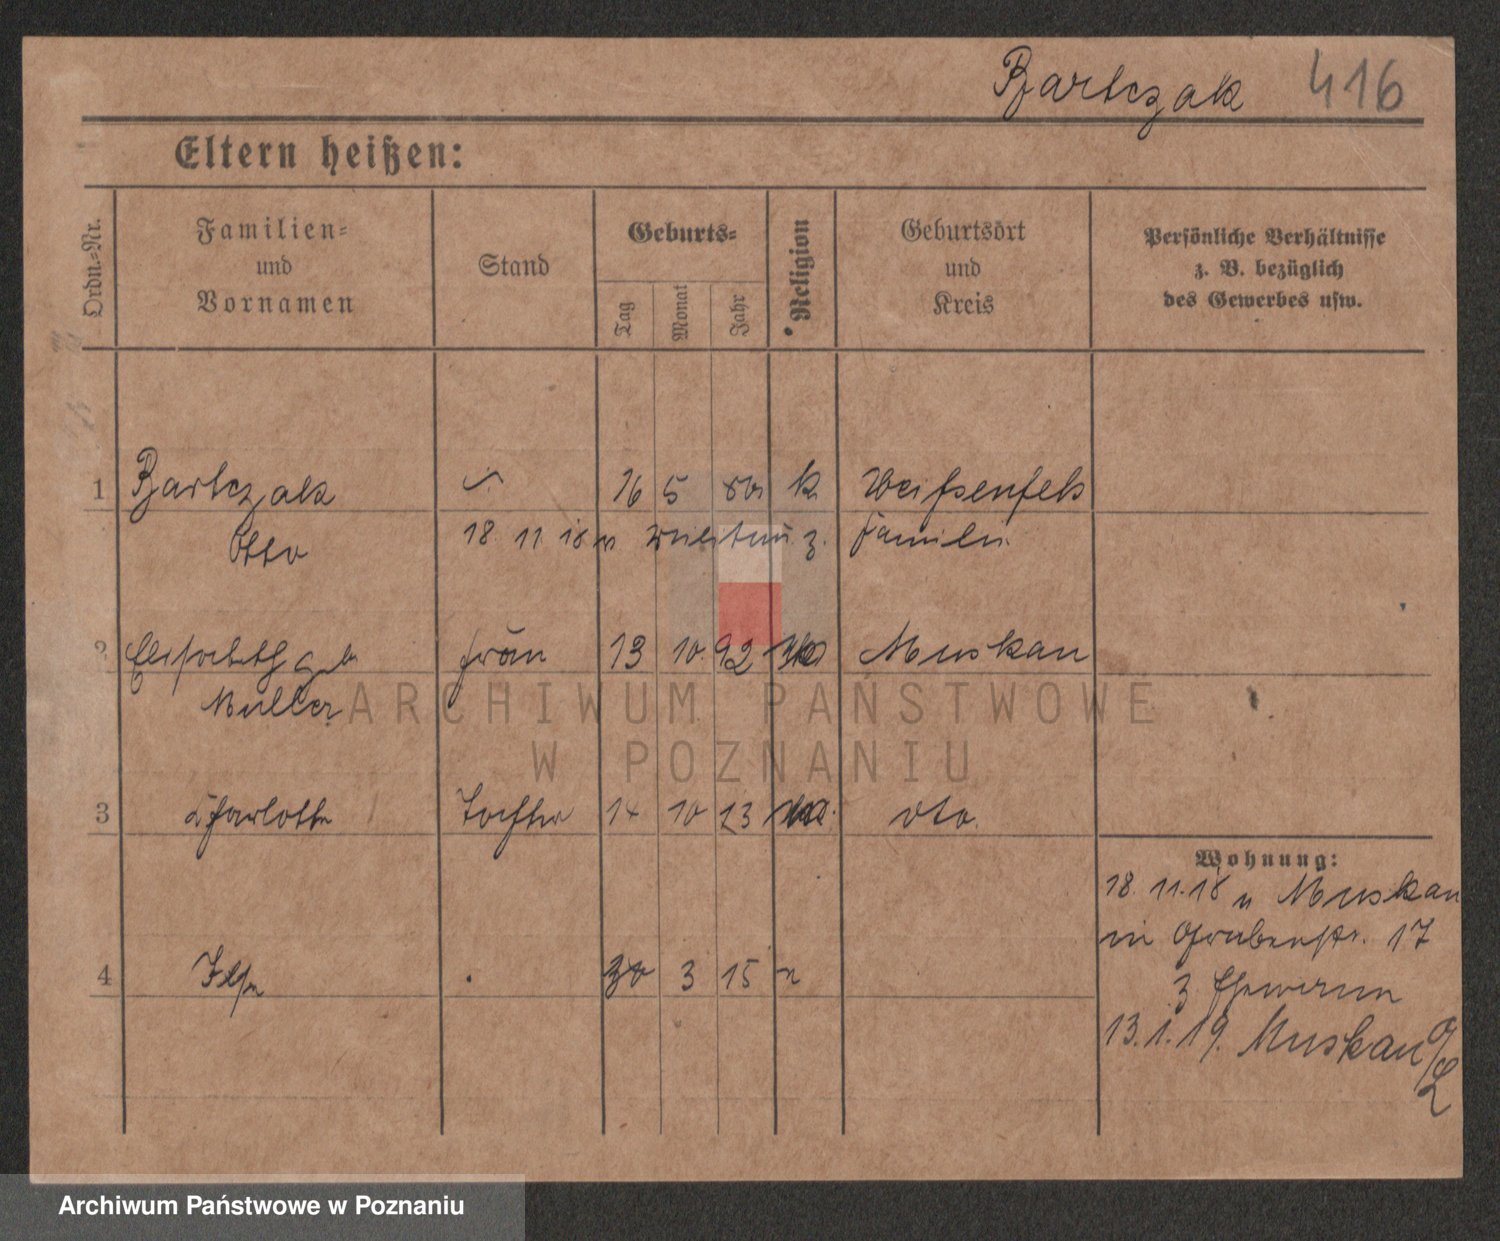 Bartczak 416
Eltern heißen:
Ordn.-Nr.
Familien=
und
Vornamen
Stand
Geburts=
Tag
Monat
Jahr
Religion
Geburtsort
und
Kreis
Persönliche Verhältnisse
z. B. bezüglich
des Gewerbes usw.
1 Bartczak 16 5 k Weißenfels
Otto 18 11 18 z. Familie
2 Elisabeth geb Frau 13 10. 92 Muskau
Müller
3 Charlotte Tochter 14 10 13 dto.
Wohnung:
18. 11.18 n Muskau
in Grubenstr. 17
4 Ilse 30 3 15
z Ehewirin
13.1.19. Muskau O/L
ARCHIWUM PAŃSTWOWE
W POZNANIU
Archiwum Państwowe w Poznaniu